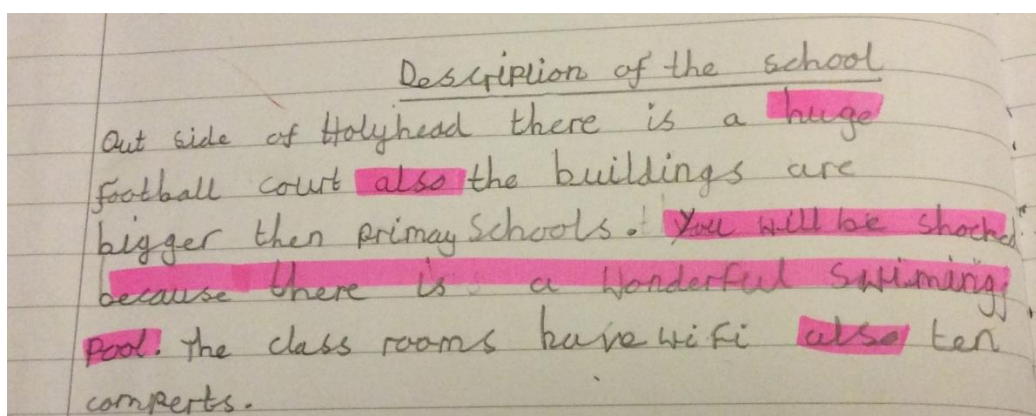 Description of the school
Out side of Holyhead there is a huge
football court also the buildings are
bigger then primay schools. You will be shocked
because there is a wonderful swiming
pool. The class rooms have wifi also ten
comperts.